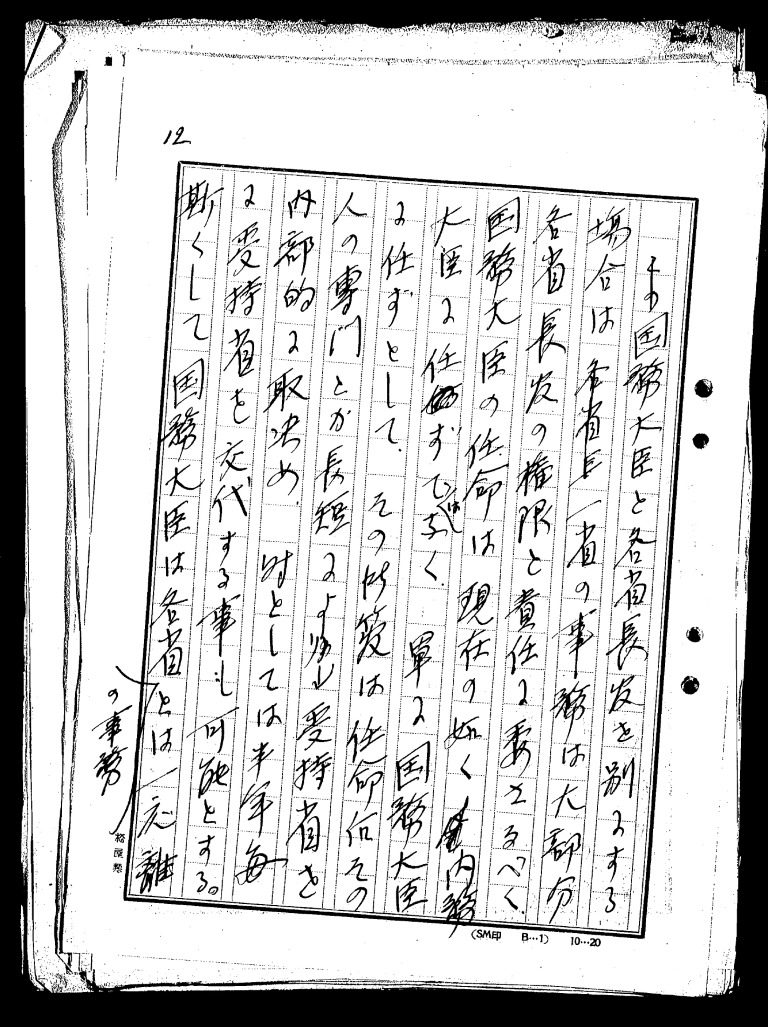 12
その国務大臣と各省長官を別にする
場合は各省長一省の事務は大部分
各省長官の権限と責任に委さるべく、
国務大臣の任命は現在の如く内務
大臣に任ずではなく、単に国務大臣
に任ずとして、その所管は任命后その
人の専門とか長短により受持省を
内部的に取決め、時としては半年毎
に受持省を交代する事も可能とする。
斯くして国務大臣は各省の事務とは一応離
(SM印 B…1) 10…20